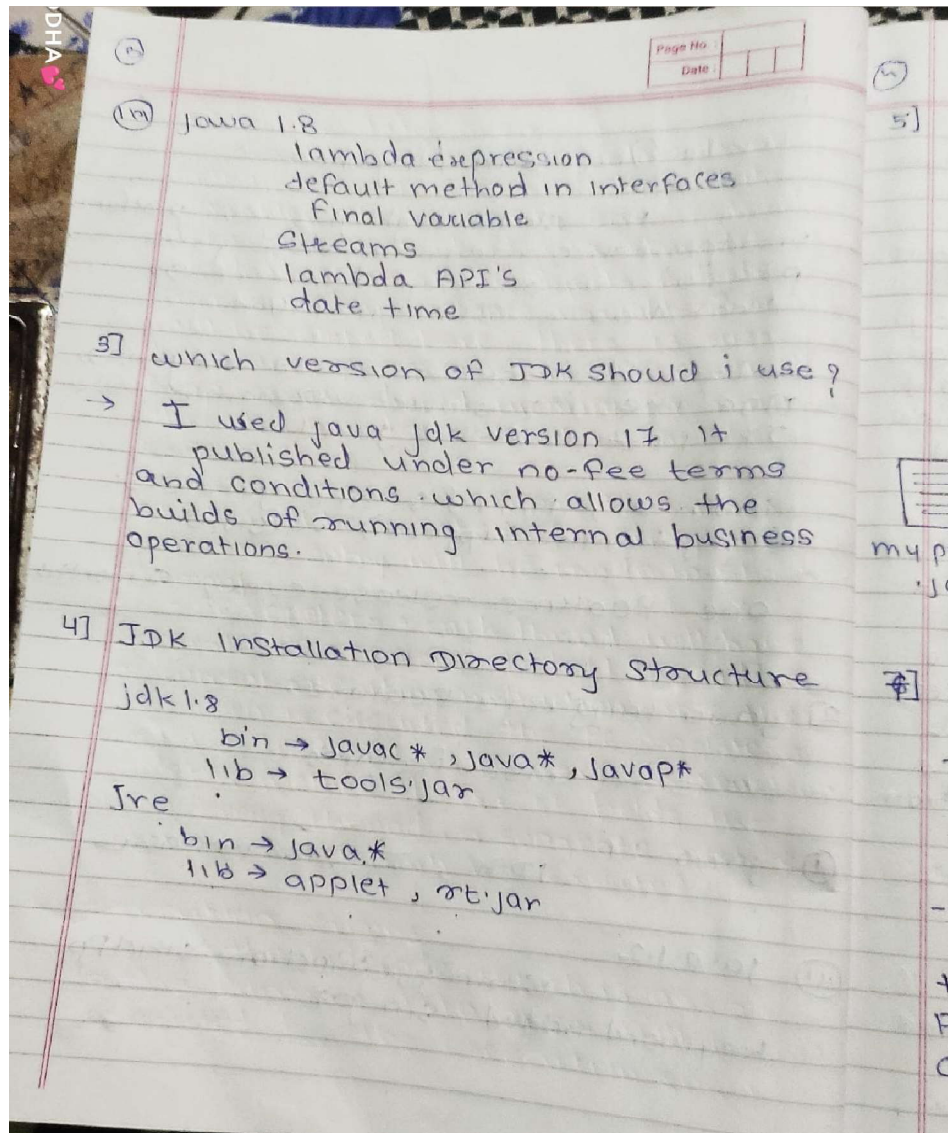 DHA💕
Page No. :
Date :
Java 1.8
lambda expression
default method in interfaces
final variable
Streams
lambda API's
date time
3] which version of JDK should i use ?
→ I used java jdk version 17 It
published under no-fee terms
and conditions. which allows the
builds of running internal business
operations.
4] JDK Installation Directory Structure
jdk 1.8
bin → javac * , java* , Javap*
lib → tools.jar
Jre
bin → java.*
lib → applet , rt.jar
5]
my p